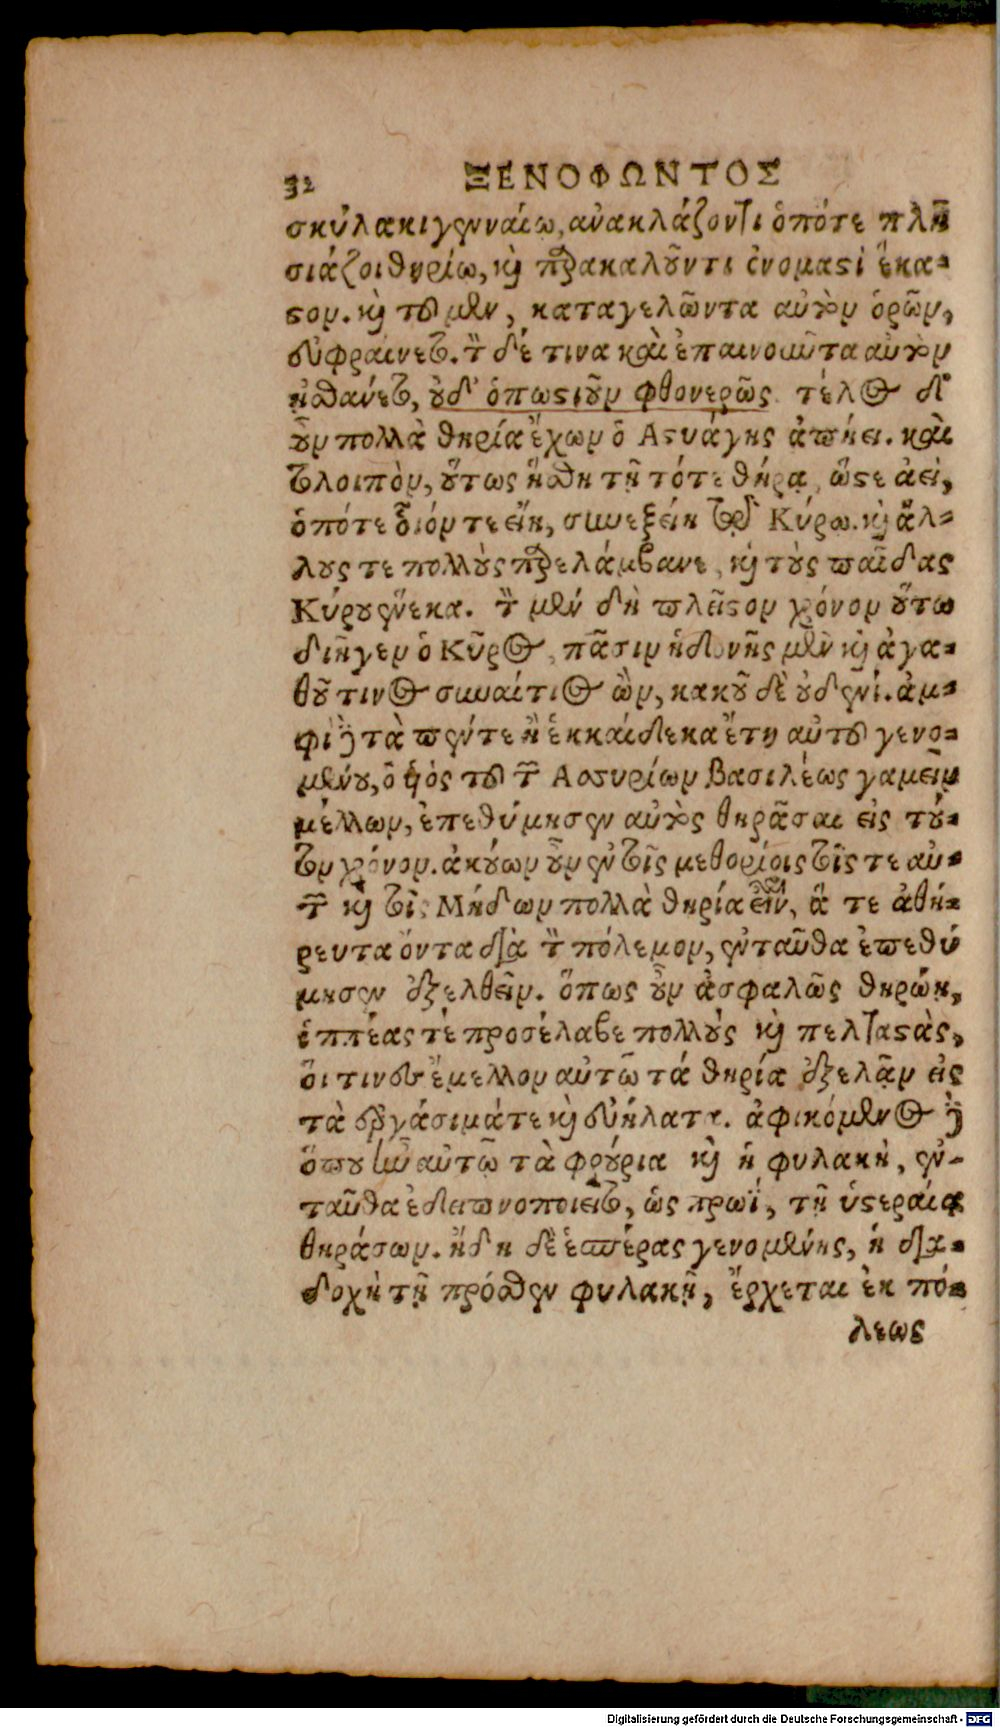 32 ΞΕΝΟΦΩΝΤΟΣ
σκύλακι γενναίῳ, ἀνακλάζοντι ὁπότε πλη
σιάζοι θηρίῳ, καὶ παρακαλοῦντι ὀνομαστὶ ἕκα-
στον. καὶ τοῦ μὲν, καταγελῶντα αὐτὸν ὁρῶν,
εὐφραίνετο. τὸν δέ τινα καὶ ἐπαινοῦντα αὐτὸν
ᾐσθάνετο, οὐδ' ὁπωστιοῦν φθονερῶς. τέλος δ'
οὖν πολλὰ θηρία ἔχων ὁ Ἀστυάγης ἀπῄει. καὶ
τολοιπὸν, οὕτως ἥσθη τῇ τότε θήρᾳ, ὥστε ἀεὶ,
ὁπότε οἷόν τε εἴη, συνεξείη τῷ Κύρῳ. καὶ ἄλ-
λους τε πολλοὺς παρελάμβανε, καὶ τοὺς παῖδας
Κύρου ἕνεκα. τὸν μὲν δὴ πλεῖστον χρόνον οὕτω
διῆγεν ὁ Κῦρος, πᾶσιν ἡδονῆς μὲν καὶ ἀγα-
θοῦ τινος συναίτιος ὢν, κακοῦ δὲ οὐδενί. ἀμ-
φὶ δὲ τὰ πέντε ἢ ἑκκαίδεκα ἔτη αὐτοῦ γενο-
μένου, ὁ υἱὸς τοῦ τῶν Ἀσσυρίων βασιλέως γαμεῖν
μέλλων, ἐπεθύμησεν αὐτὸς θηρᾶσαι εἰς τοῦ-
τον χρόνον. ἀκούων οὖν ἐν τοῖς μεθορίοις τοῖς τε αὐ-
τῶν καὶ τοῖς Μήδων πολλὰ θηρία εἶναι, ἅ τε ἀθή-
ρευτα ὄντα διὰ τὸν πόλεμον, ἐνταῦθα ἐπεθύ
μησεν ἐξελθεῖν. ὅπως οὖν ἀσφαλῶς θηρῴη,
ἱππέας τέ προσέλαβε πολλοὺς καὶ πελταστὰς,
οἵτινες ἔμελλον αὐτῷ τά θηρία ἐξελᾷν εἰς
τὰ ἐργάσιμά τε καὶ εὐήλατα. ἀφικόμενος δὲ
ὅπου ἦν αὐτῷ τὰ φρούρια καὶ ἡ φυλακὴ, ἐν-
ταῦθα ἐδειπνοποιεῖτο, ὡς πρωῒ, τῇ ὑστεραίᾳ
θηράσων. ἤδη δὲ ἑσπέρας γενομένης, ἡ δια-
δοχὴ τῇ πρόσθεν φυλακῇ, ἔρχεται ἐκ πό-
λεως
Digitalisierung gefördert durch die Deutsche Forschungsgemeinschaft - DFG